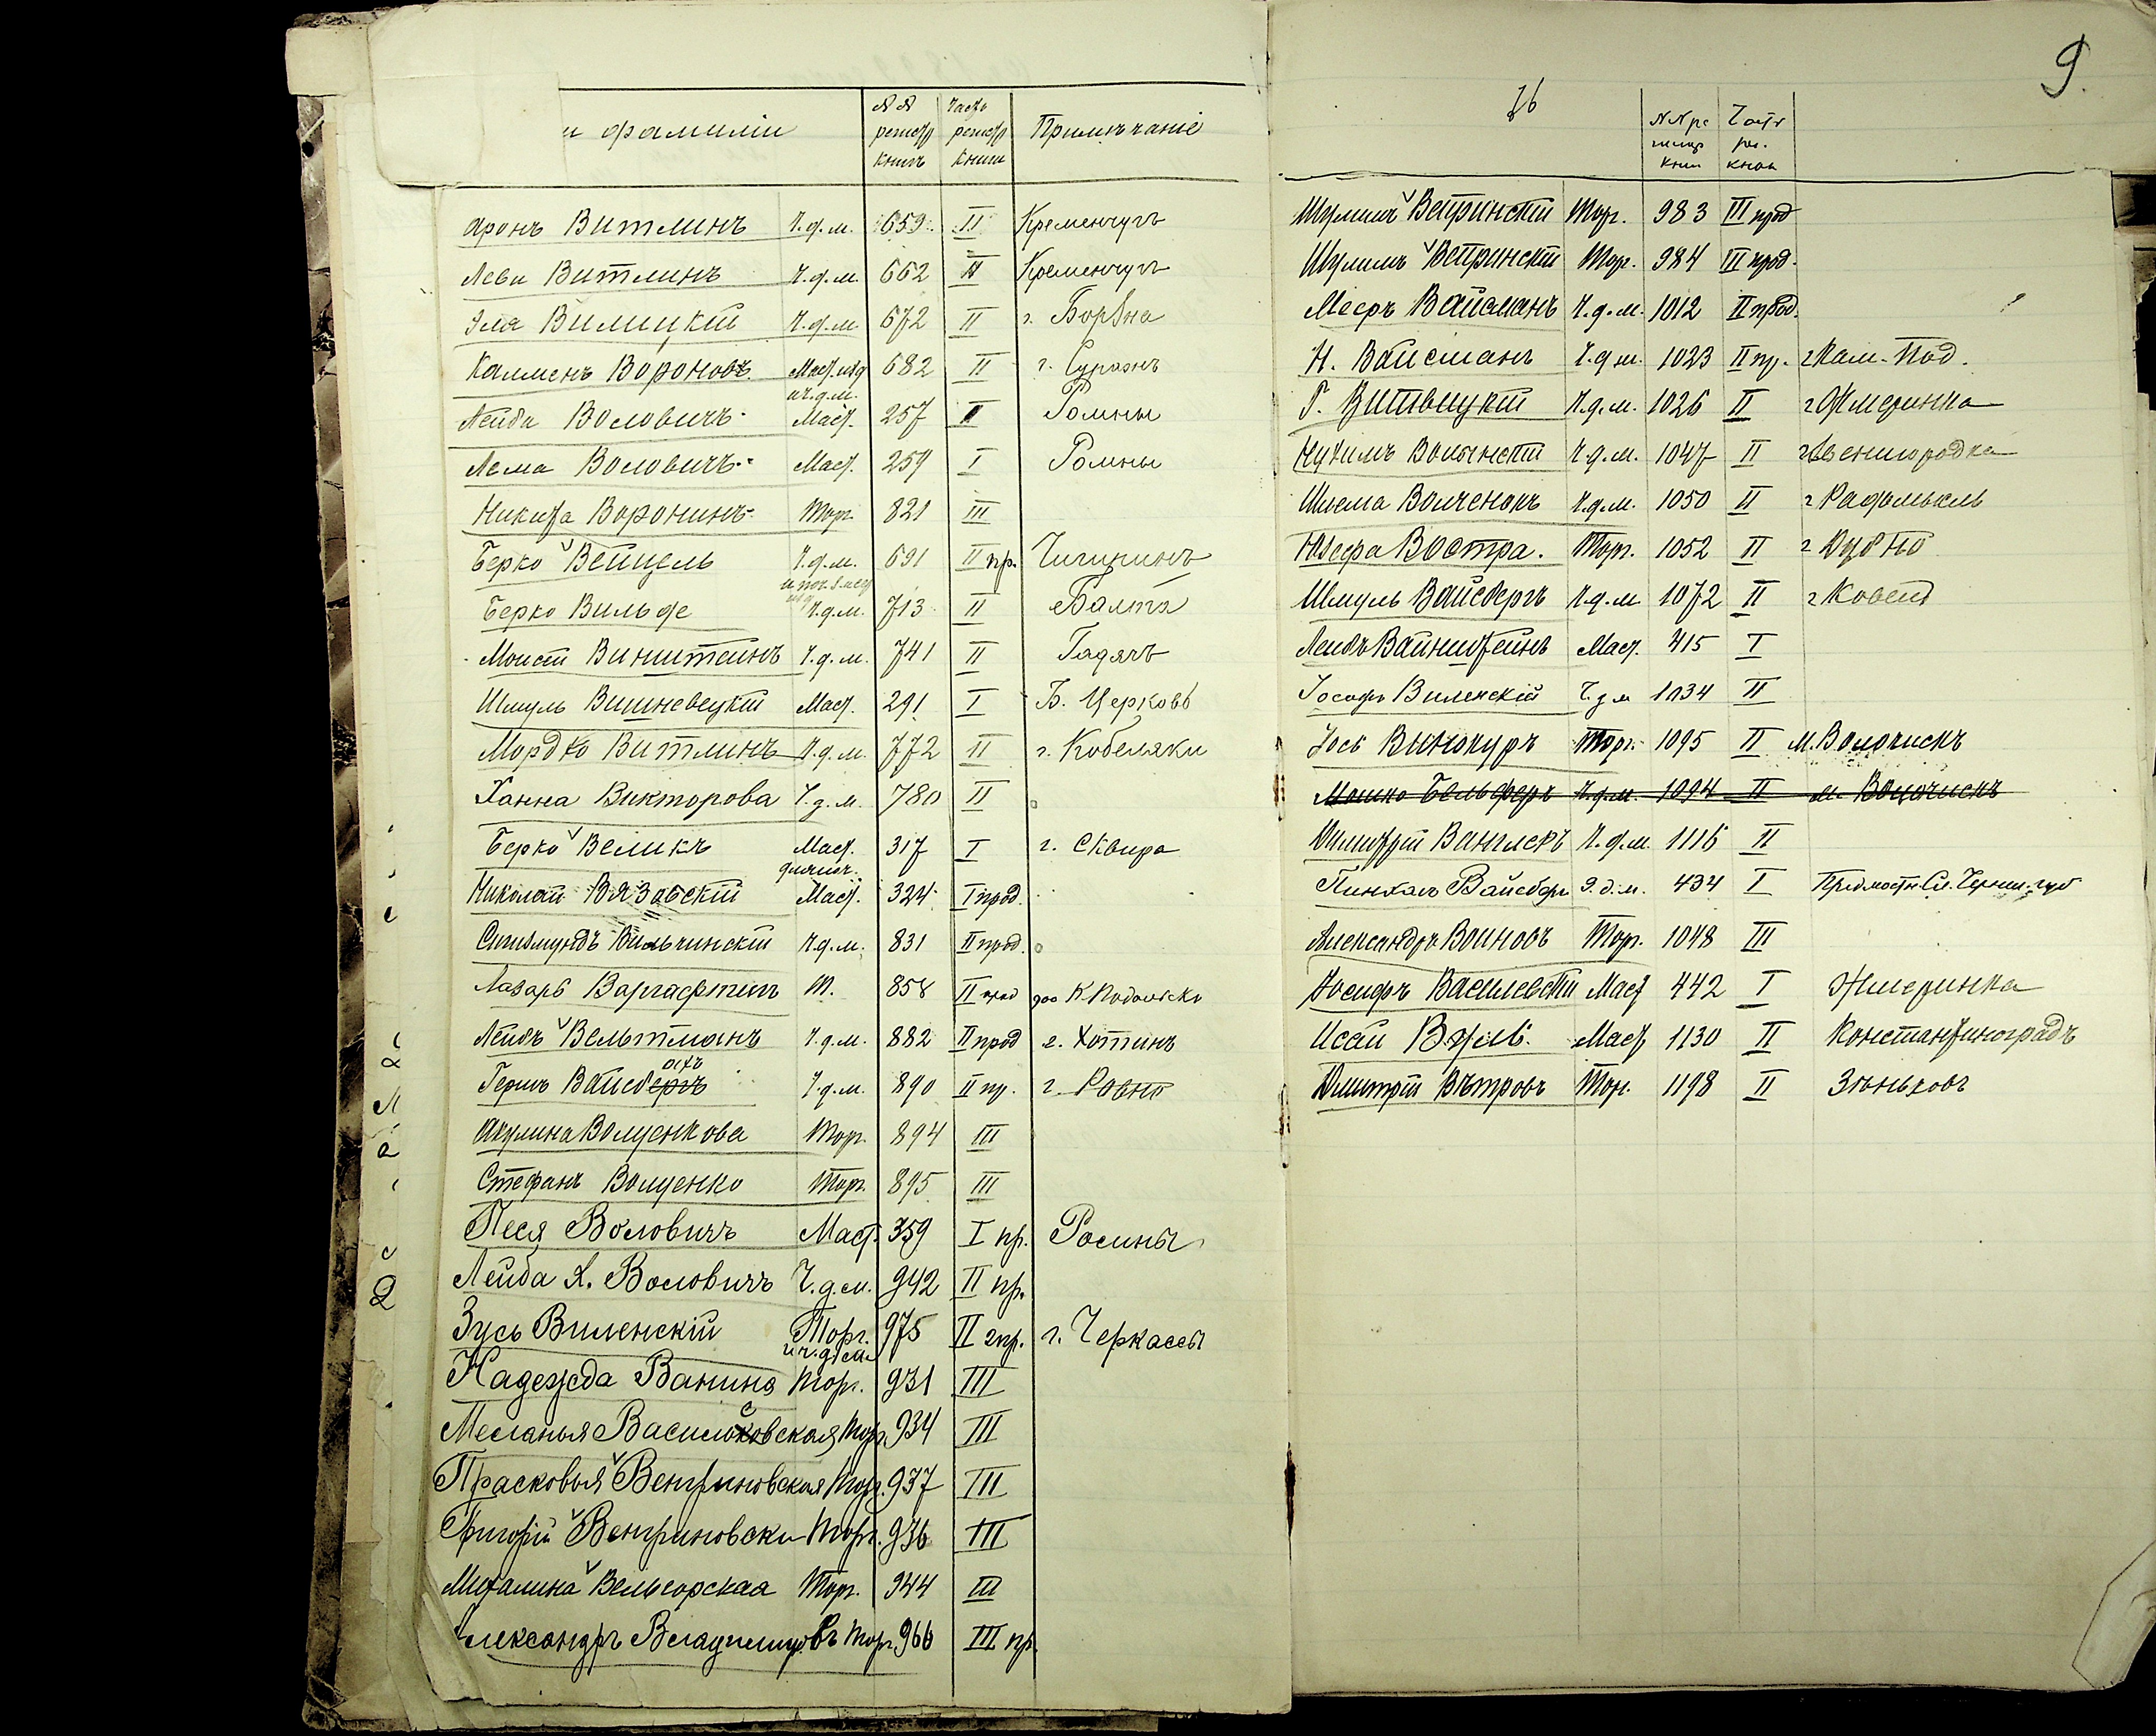 и фамиліи №№ регистр книгъ Часть регистр книги Примѣчаніе
Аронъ Витлинъ Ч.д.м. 659 II Кременчугъ
Леви Витлинъ Ч.д.м. 662 II Кременчугъ
Эля Вилицкій Ч.д.м. 672 II г. Борзна
Калменъ Вороновъ Маст. изд и ч.д.м. 682 II г. Суражъ
Лейба Воловичъ Маст. 257 I Ромны
Лема Воловичъ Маст. 259 I Ромны
Никита Воронинъ Торг. 821 III
Берко Вейцель Ч.д.м. 691 II пр. Чигиринъ
Берко Вильде Ч.д.м. 713 II Балта
Моисей Винштейнъ Ч.д.м. 741 II Гадячъ
Шмуль Вишневецкій Маст. 291 I Б. Церковь
Мордко Витлинъ Ч.д.м. 772 II г. Кобеляки
Ханна Викторова Ч.д.м. 780 II
Берко Великъ Маст. 317 I г. Сквира
Николай Вязовскій Маст. 324 I прод.
Сигизмундъ Вильчинскій Ч.д.м. 831 II прод.
Лазарь Варгафтигъ М. 858 II прод К. Подольскъ
Лейбъ Вельтманъ Ч.д.м. 882 II прод г. Хотинъ
Гершъ Вайсбергъ Ч.д.м. 890 II пр. г. Ровно
Акулина Волценкова Торг. 894 III
Стефанъ Волценко Торг. 895 III
Песя Воловичъ Маст. 359 I пр. Ромны
Лейба Х. Воловичъ Ч.д.м. 942 II пр.
Зусь Виленскій Торг. и ч.д.м. 975 II 2пр. г. Черкассы
Надежда Ванина Торг. 931 III
Меланья Василковская Торг. 934 III
Прасковья Венгриновская Торг. 937 III
Григорій Венгриновски Торг. 936 III
Михалина Вельгорская Торг. 944 III
Александръ Владимировъ Торг. 966 III пр.
9.
№№ ре гистр книг Часть рег. книги
Шулимъ Ветринскій Торг. 983 III прод
Шулимъ Ветринскій Торг. 984 III прод.
Мееръ Вайсманъ Ч.д.м. 1012 II прод.
Н. Вайсманъ Ч.д.м. 1023 II пр. г Кам. Под.
Г. Витвицкій Ч.д.м. 1026 II г Жмеринка
Нухимъ Волынскій Ч.д.м. 1047 II г Звенигородка
Шлема Волченокъ Ч.д.м. 1050 II г Радомысль
Юзефа Востра. Торг. 1052 II г Дубно
Шмуль Вайсбергъ Ч.д.м. 1072 II г Ковель
Лейбъ Вайнштейнъ Маст. 415 I
Іосифъ Виленскій Ч.д.м 1034 II
Іось Винокуръ Торг. 1095 II м. Волочискъ
Мошко Бельферъ Ч.д.м. 1094 II м. Волочискъ
Димитрій Ванглеръ Ч.д.м. 1116 II
Пинхасъ Вайсберг Э.д.м. 434 I Предмостн. Сл. Черниг. губ
Александръ Воиновъ Торг. 1048 III
Іосифъ Василевскій Маст 442 I Жмеринка
Исай Маст 1130 II Константиноградъ
Дмитрій Вѣтровъ Торг. 1198 II Зѣньковъ